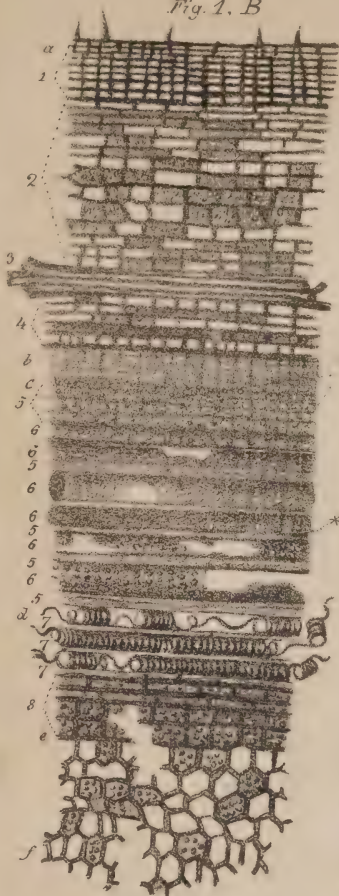 Fig. 1. B
a
1
2
3
4
b
c
5
6
6
5
6
6
5
6
5
6
5
d
7
7
7
8
e
f
*